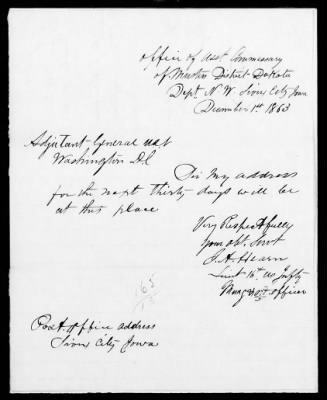 Office of Asst Commissary
of Muster District Dakota
Dept N.W. Sioux City Iowa
December 1st 1863
Adjutant General USA
Washington D.C
Sir My address
for the next thirty days will be
at this place
Very Respectfully
Your obt. Servt
J. A. Hearn
Lieut 15th US Infty
Must officer
165
Post office address
Sioux City Iowa